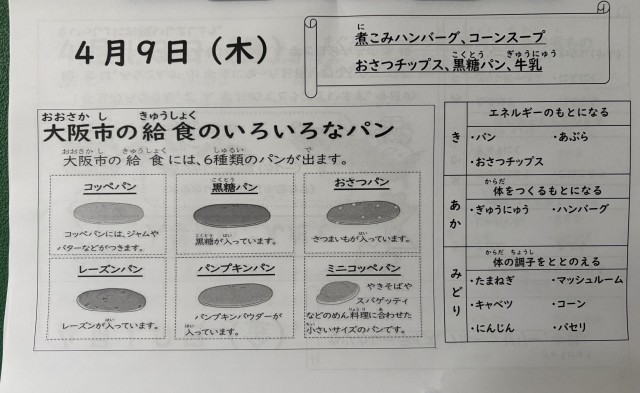 4月9日（木）
煮こみハンバーグ、コーンスープ
おさつチップス、黒糖パン、牛乳
大阪市の給食のいろいろなパン
大阪市の給食には、6種類のパンが出ます。
コッペパン
コッペパンには、ジャムや
バターなどがつきます。
黒糖パン
黒糖が入っています。
おさつパン
さつまいもが入っています。
レーズンパン
レーズンが入っています。
パンプキンパン
パンプキンパウダーが
入っています。
ミニコッペパン
やきそばや
スパゲッティ
などのめん料理に合わせた
小さいサイズのパンです。
き
エネルギーのもとになる
・パン ・あぶら
・おさつチップス
あか
体をつくるもとになる
・ぎゅうにゅう ・ハンバーグ
みどり
体の調子をととのえる
・たまねぎ ・マッシュルーム
・キャベツ ・コーン
・にんじん ・パセリ